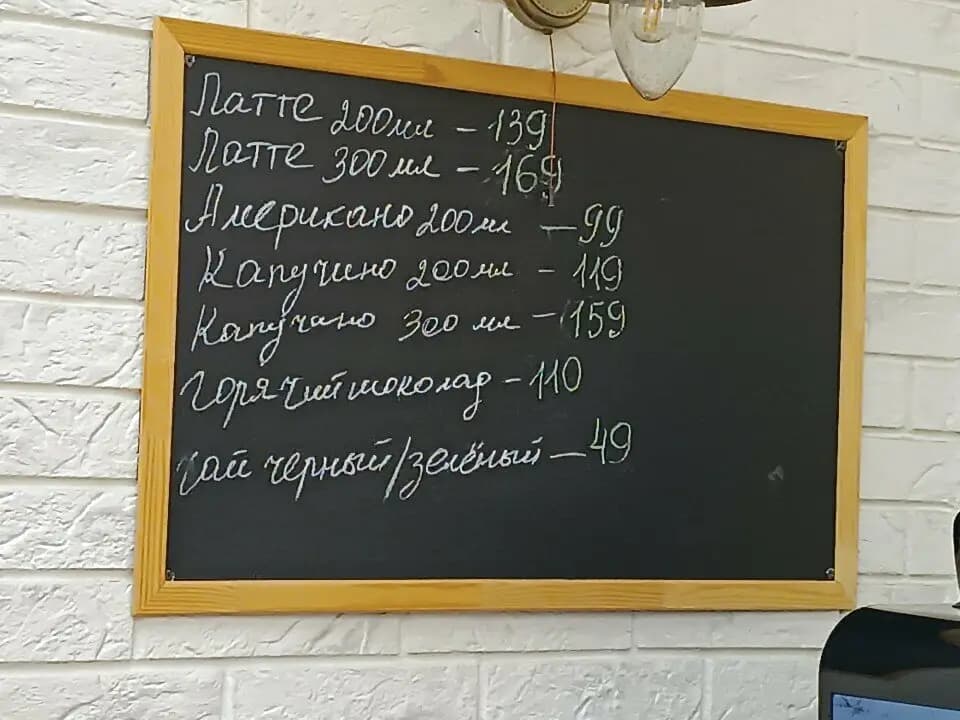 Латте 200мл – 139
Латте 300мл – 169
Американо 200мл — 99
Капучино 200мл – 119
Капучино 300 мл – 159
Горячий шоколад – 110
чай черный/зелёный — 49